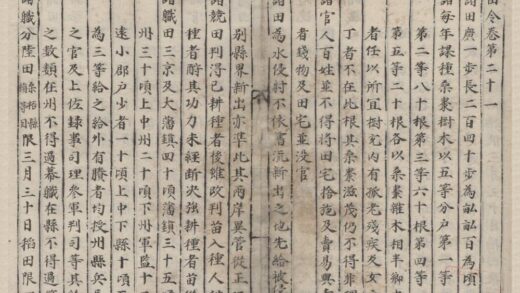 田令卷第二十一
諸田廣一步長二百四十步為畝畝百為頃
諸每年課種桑棗樹木以五等分戶第一等
第二等八十根第三等六十根第四等
第五等二十根各以桑棗雜木相半鄉土
者任以所宜樹充內有孤老殘疾及女
丁者不在此根其桑棗滋茂仍不得非理
諸官人百姓並不得將田宅捨施及賣易與
者錢物及田宅並沒官
諸田為水侵射不依舊流新出之地先給被
別縣界新出亦準此其兩岸異管從正
諸競田判得已耕種者後雖改判苗入種人
種者酬其功力未經斷決強耕種者苗從
諸職田三京及大藩鎮四十頃藩鎮三十五
州三十頃上中州二十頃下州軍監十
遠小郡戶少者一十頃上中下縣十頃
為三等給之給外有賸者均授州縣兵
之官及上佐錄事司理參軍判司等其
之數類在州不得過幕職在縣不得過
諸職分陸田限三月三十日稻田限